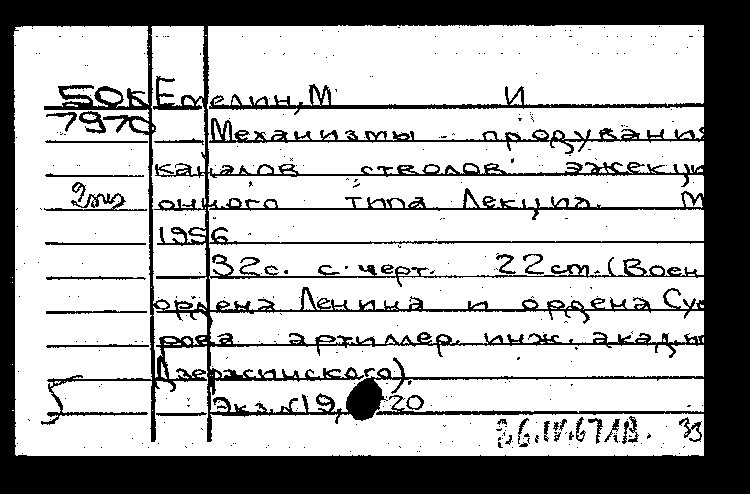 50К Емелин, М И
7970 Механизмы продувания
каналов стволов эжекци
2экз онного типа Лекция. М
1956
32с. с черт. 22 см. (Воен
ордена Ленина и ордена Сув
рова артиллер. инж. акад. им
Дзержинского).
Экз. №19, 20
26.IV.67 1В. 33